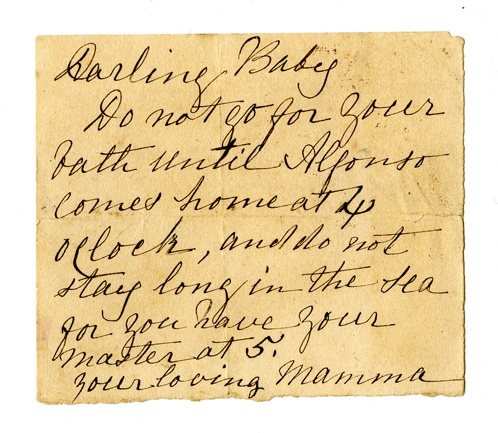 Darling Baby
Do not go for your
bath until Alfonso
comes home at 4
o'clock, and do not
stay long in the sea
for you have your
master at 5.
your loving Mamma